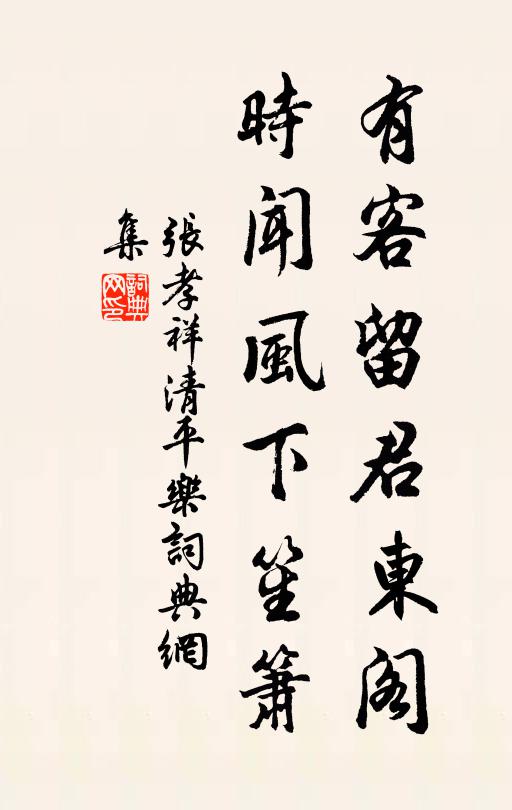 有客留君東閣
時聞風下笙簫
張孝祥清平樂詞典網
集
詞典
网印